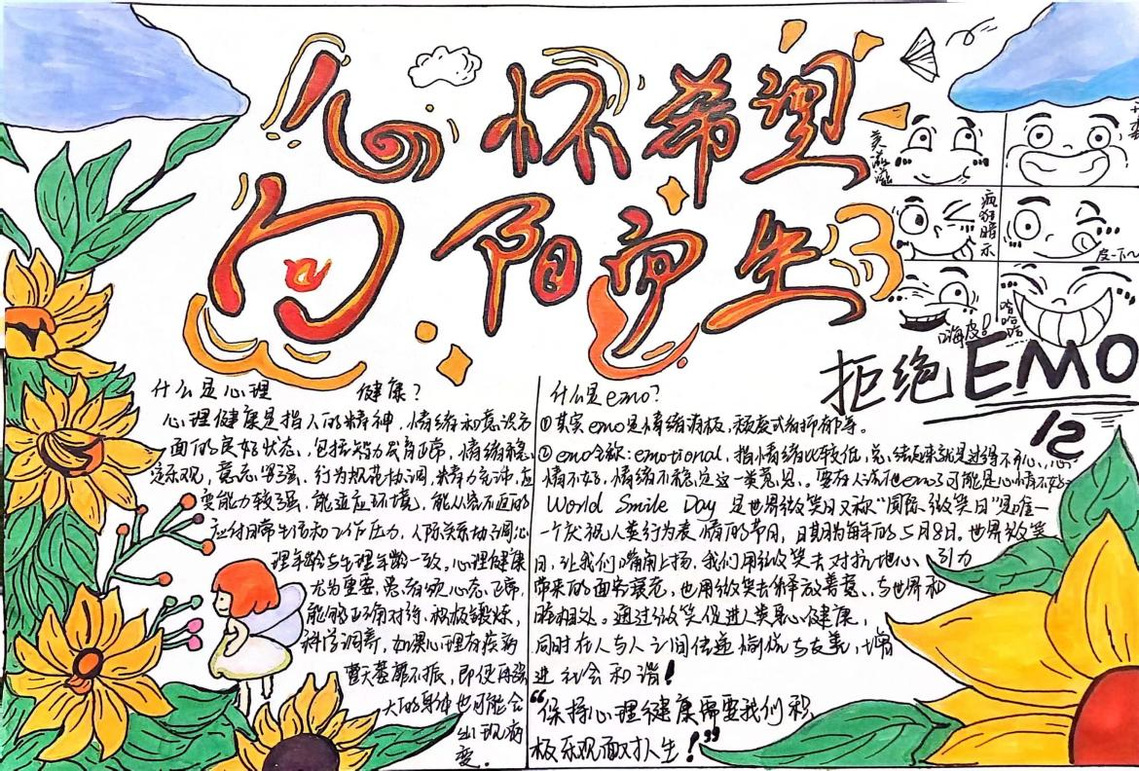 心怀希望
向阳而生
美滋滋
疯狂暗示
皮一下~
嗨皮!
哈哈哈
拒绝EMO
什么是心理 健康?
心理健康是指人的精神、情绪和意识方
面的良好状态、包括智力发育正常,情绪稳
定乐观,意志坚强,行为规范协调,精力充沛,应
变能力较强,能适应环境,能从容不迫的
应付日常生活和工作压力,人际关系协调,心
理年龄与生理年龄一致。心理健康
尤为重要,患者须心态正常,
能够正确对待,积极锻炼,
科学调养,如果心理有疾病
整天萎靡不振,即便再强
大的身体也可能会
出现病
变。
什么是emo?
①其实emo是情绪消极,颓废或抑郁等。
②emo全称:emotional,指情绪比较低,总结起来就是过得不开心,心
情不好,情绪不稳定这一类意思。要有人说他emo了可能是心情不好
World Smile Day 是世界微笑日又称“国际微笑日”是唯一
一个庆祝人类行为表情的节日,日期为每年的5月8日。世界微笑
日,让我们嘴角上扬,我们用微笑去对抗地心引力
带来的面容衰老,也用微笑去释放善意、与世界和
睦相处。通过微笑促进人类身心健康,
同时在人与人之间传递愉悦与友善,增
进社会和谐!
“保持心理健康需要我们积
极乐观面对人生!”